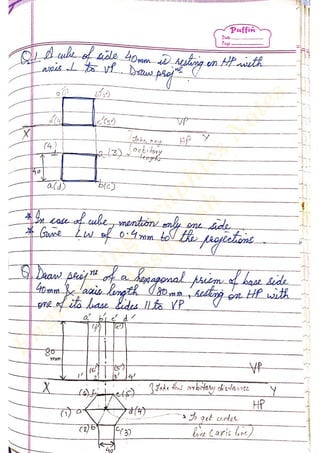 Puffin
Date
Page
Q.1. A cube of side 40mm is resting on HP with
axis ⊥ to VP. Draw projⁿˢ.
VP
X Y
HP
{Take any
arbitrary
length
(4) 1 2 (3)
40
a(d) b(c)
* In case of cube, mention only one side
* Give LW of 0.4mm to the projections.
Q. Draw projⁿˢ of a hexagonal prism of base side
40mm & axis length 80mm, resting on HP with
one of its base sides || to VP.
a' b' c' d'
80
mm
1' 2' 3' 4'
VP
X } Take this arbitrary distance Y
HP
(1) a d(4)
→ To get center
line (axis line)
(2) b c(3)
40